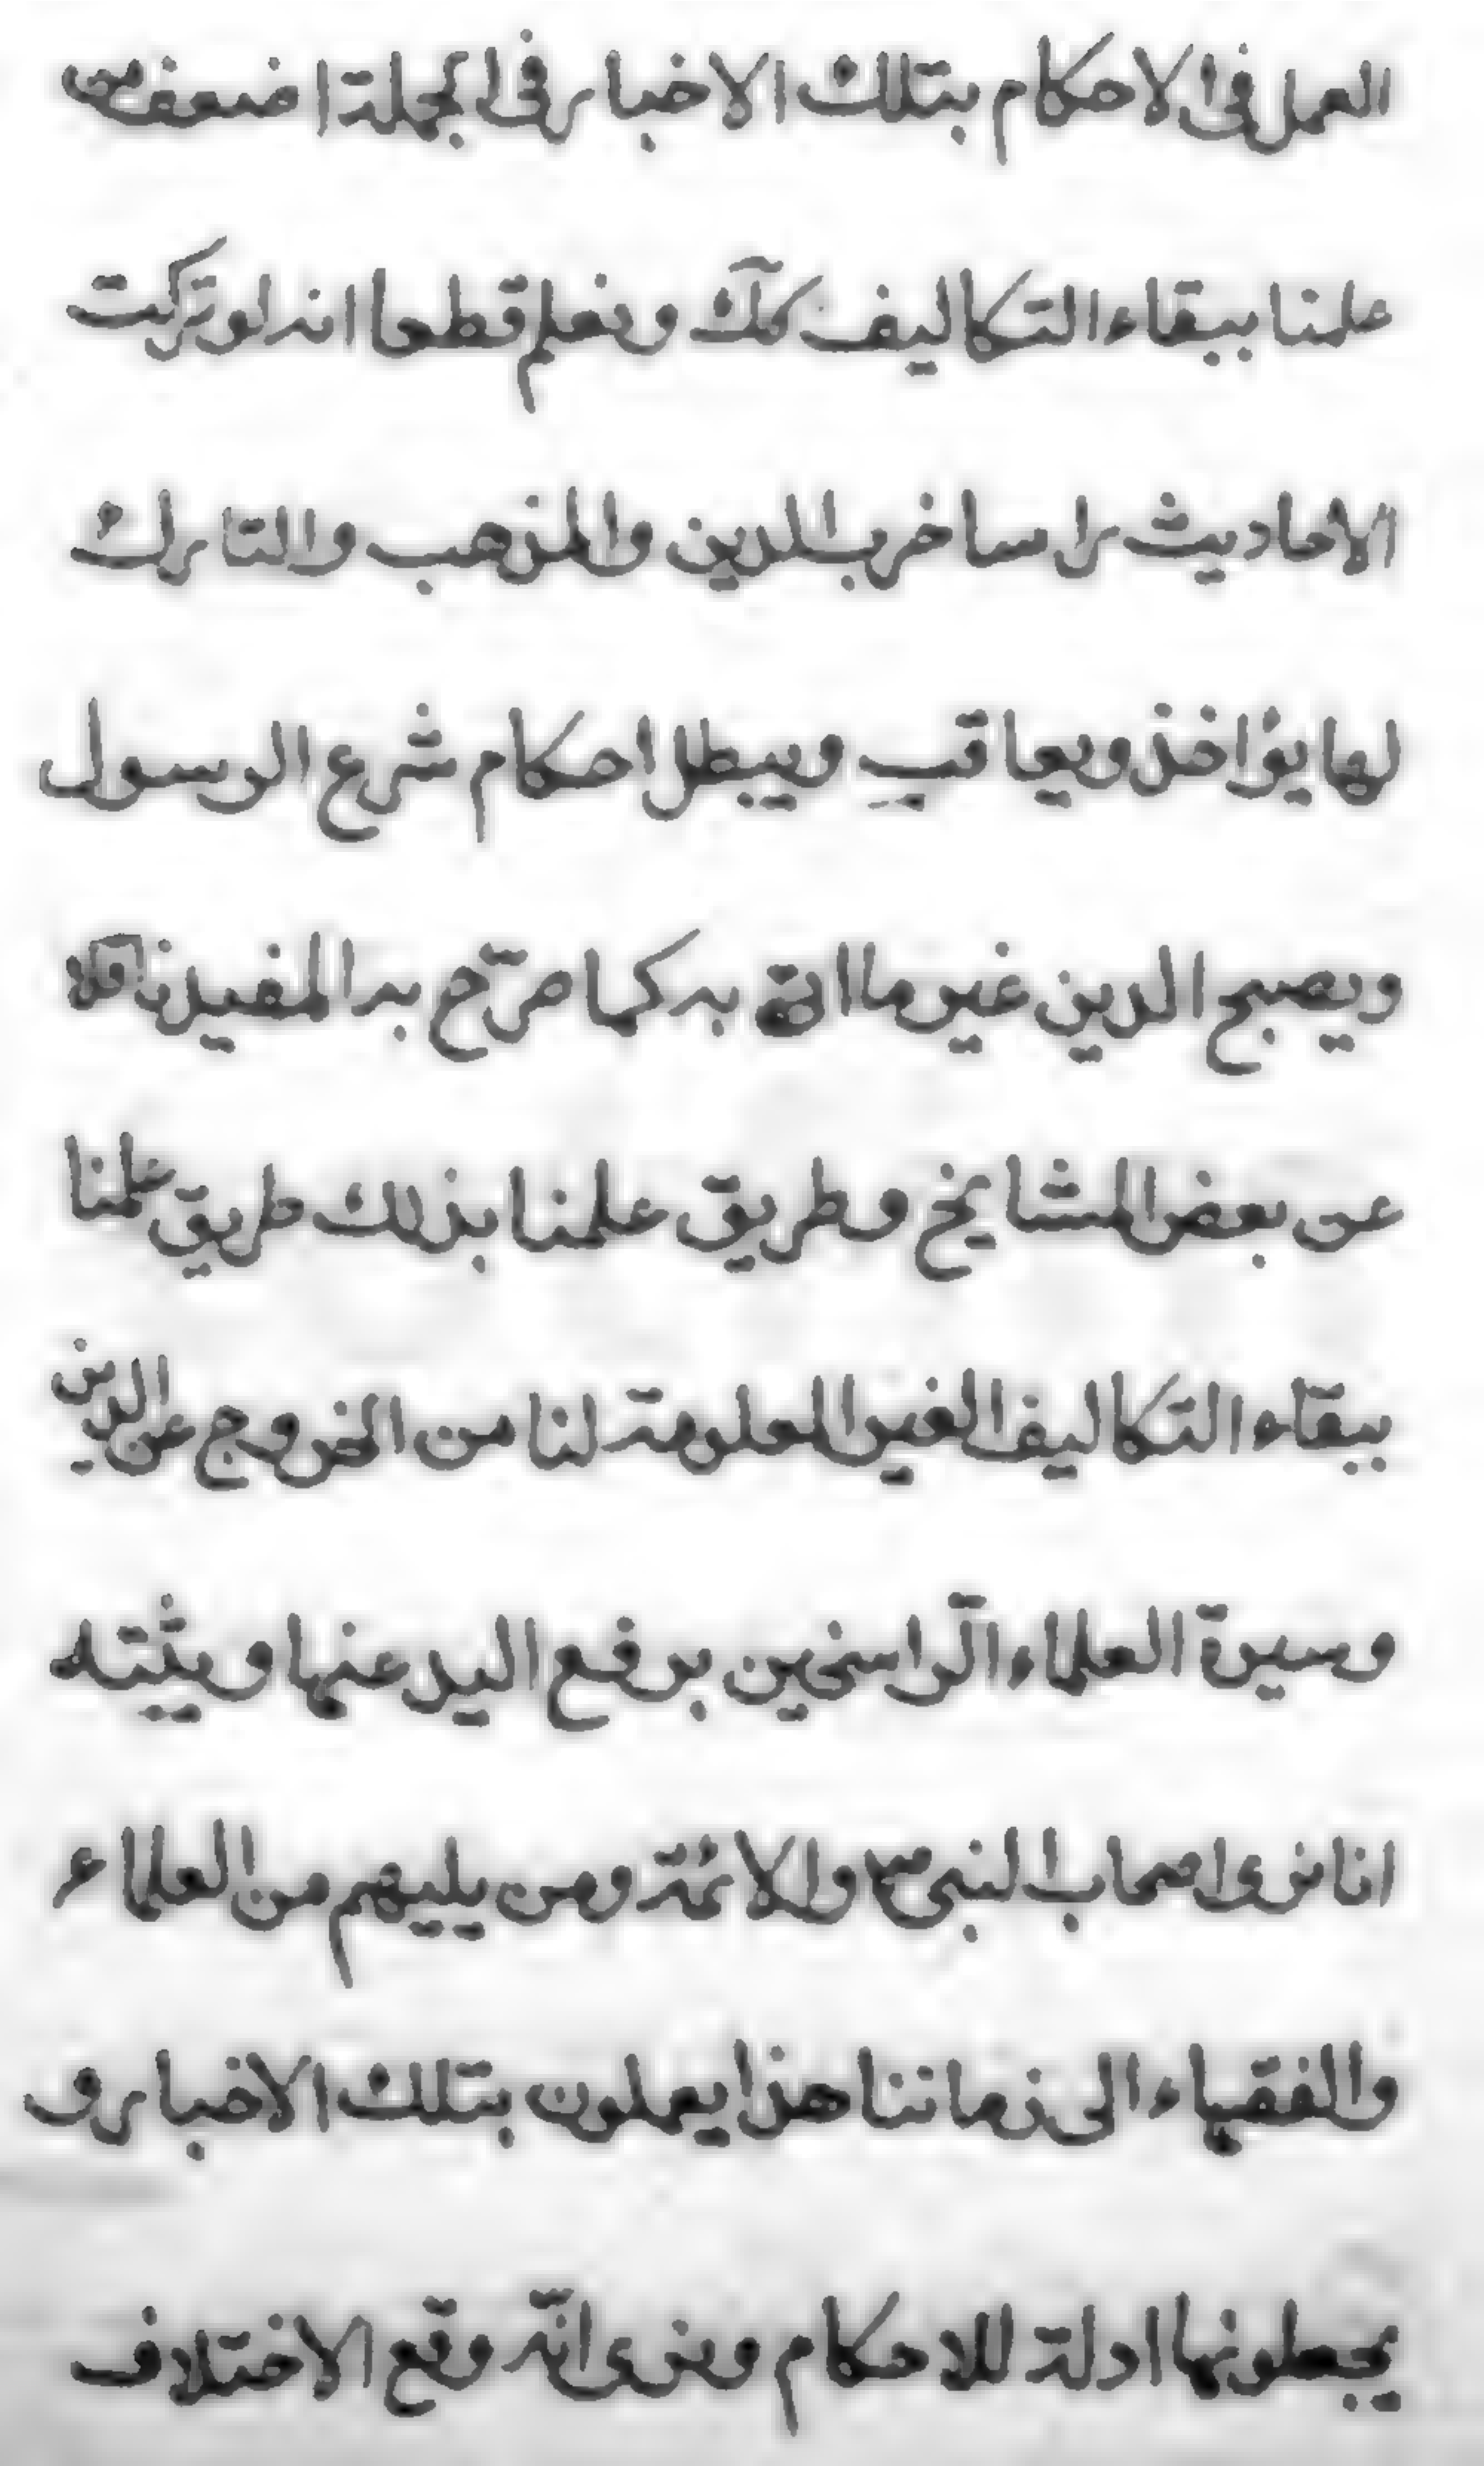 العمل فى الاحكام بتلك الاخبار فى الجملة اضعف من
علمنا ببقاء التكاليف كك ونعلم قطعا انه لو تركت
الاحاديث راسا خرب الدين والمذهب والتارك
لها يؤاخذ ويعاقب ويبطل احكام شرع الرسول
ويصبح الدين غير ما اتى به كما صرّح به المفيد
عن بعض المشايخ وطريق علمنا بذلك طريق علمنا
ببقاء التكاليف الغير المعلومة لنا من الخروج عن الدين
وسيرة العلماء الرّاسخين برفع اليد عنها ويثبته
انا نرى اصحاب النبى ص والائمّة ومن يليهم من العلماء
والفقهاء الى زماننا هذا يعملون بتلك الاخبار و
يجعلونها ادلة للاحكام ونرى انّه وقع الاختلاف